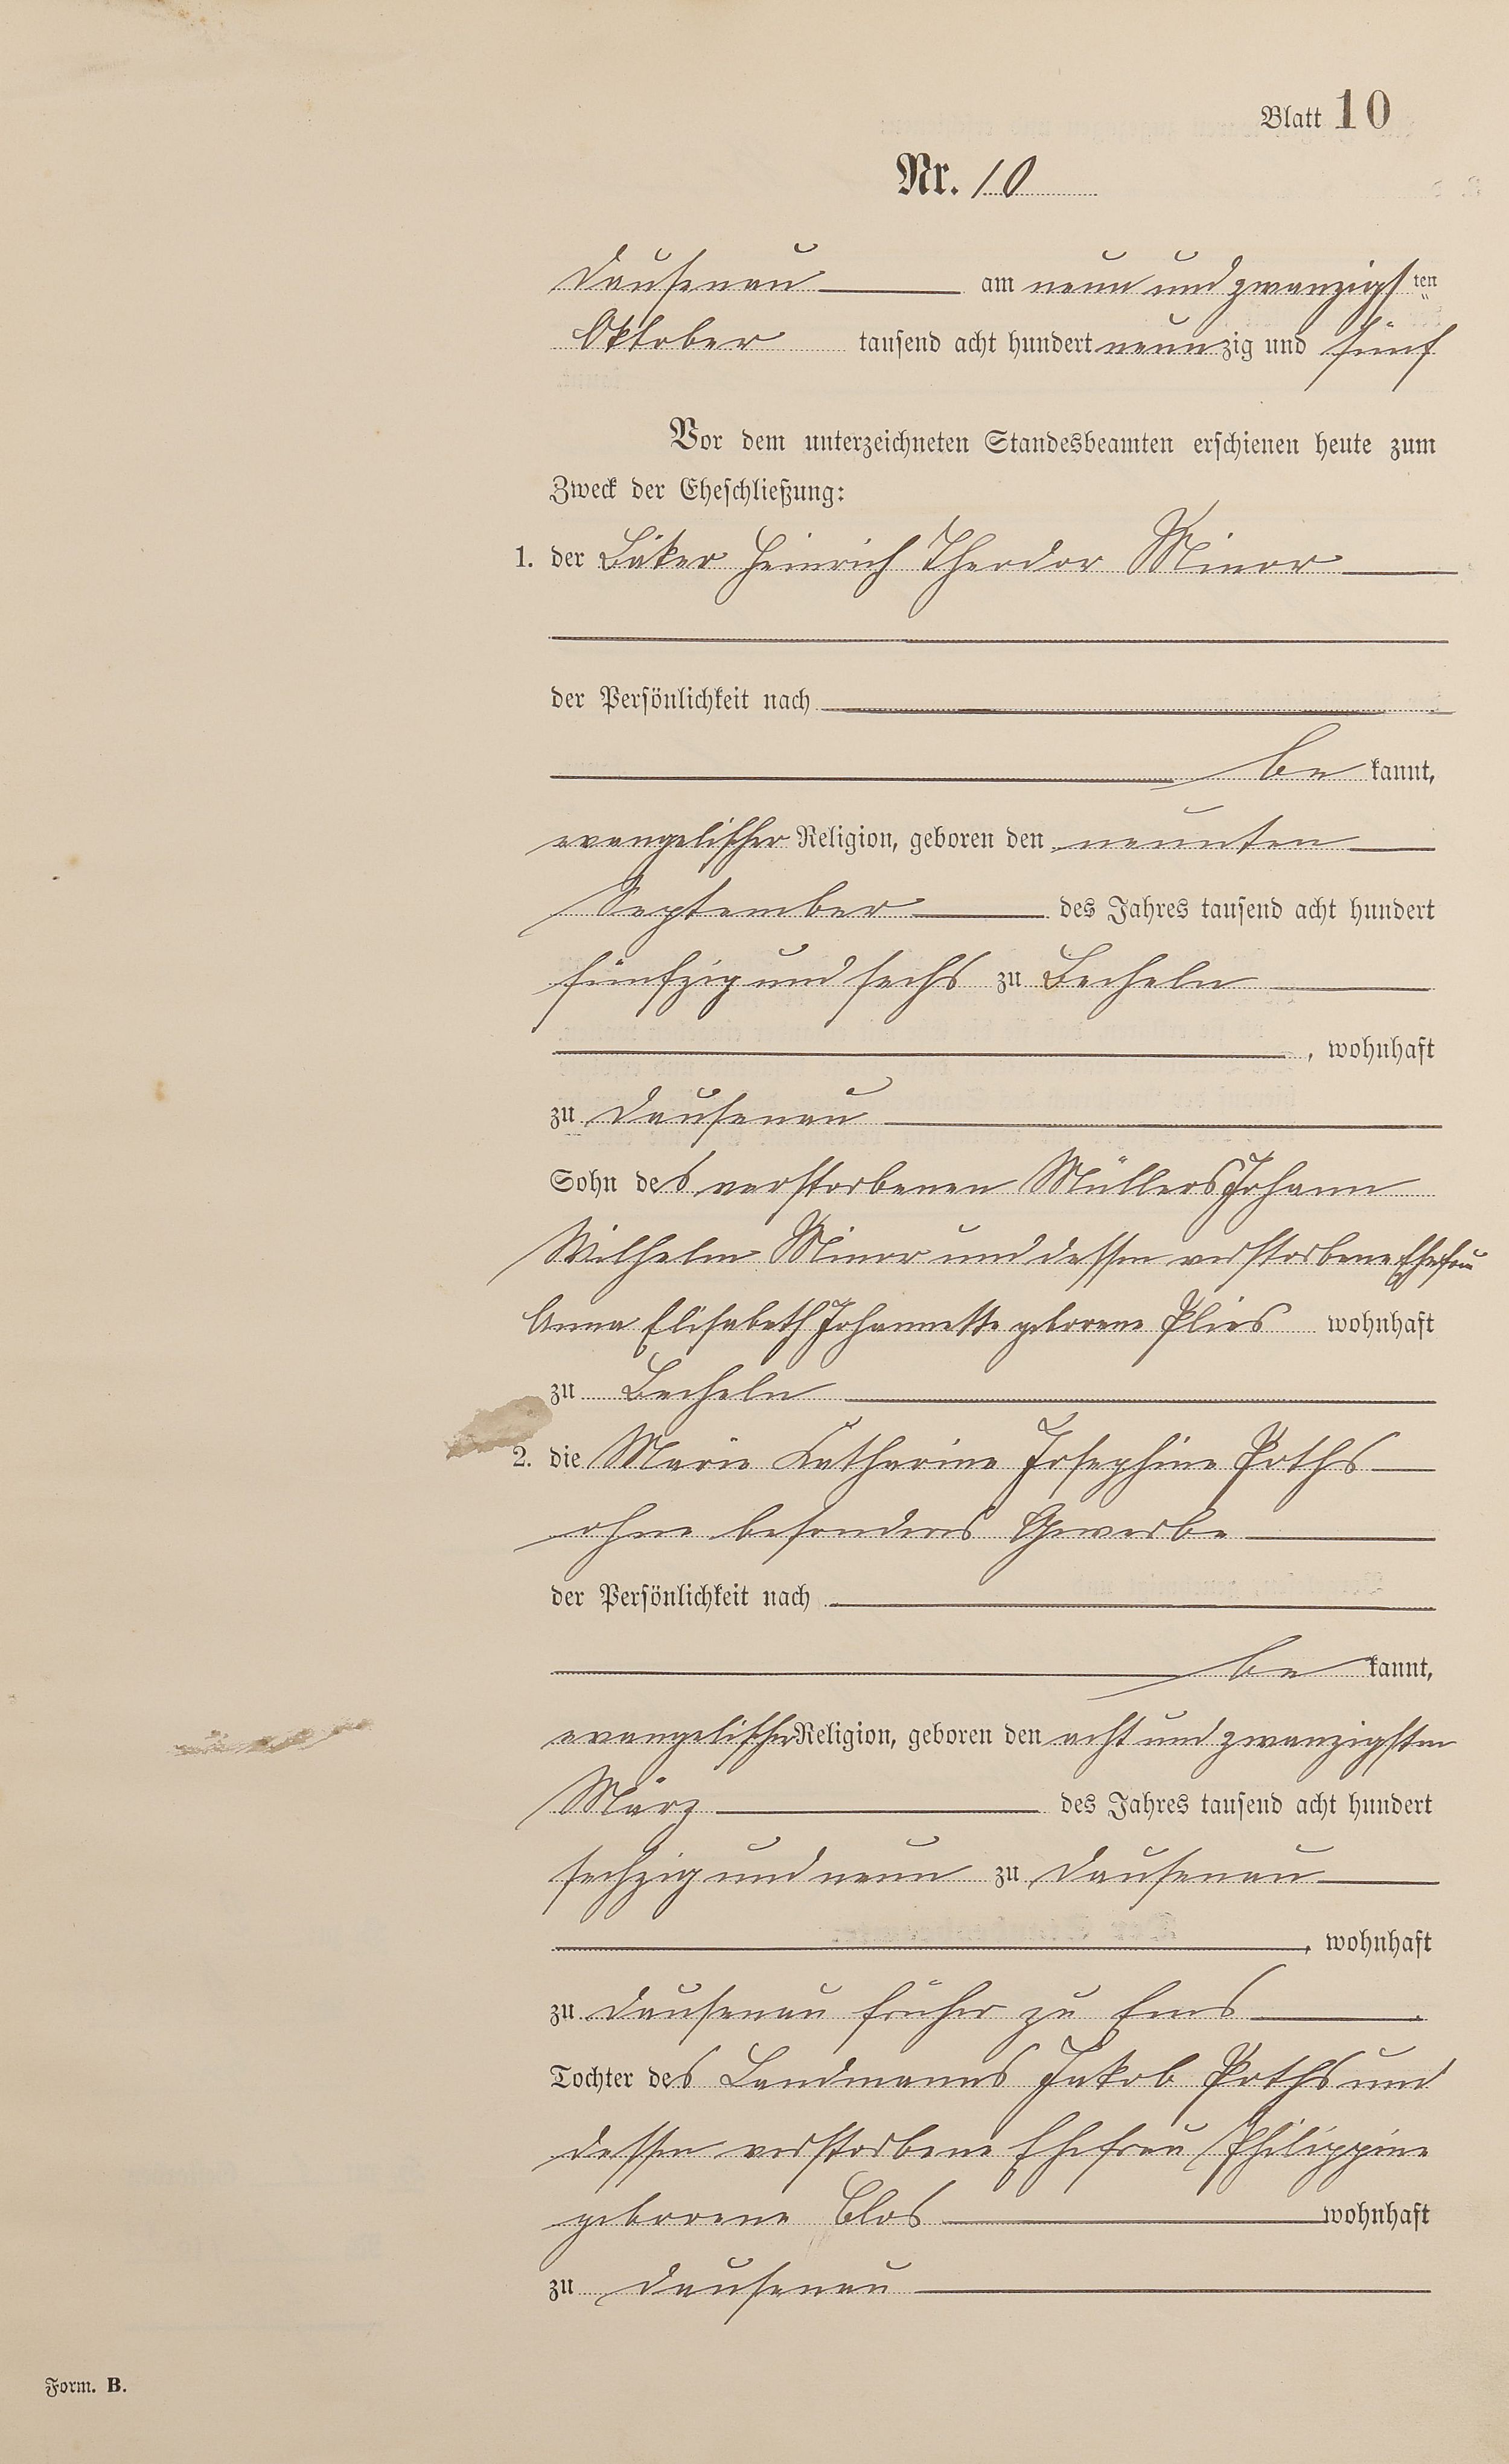 Blatt 10
Nr. 10
Dausenau am neun und zwanzigsten
Oktober tausend acht hundert neunzig und fünf
Vor dem unterzeichneten Standesbeamten erschienen heute zum
Zweck der Eheschließung:
1. der Bäker Heinrich Theodor Minor
der Persönlichkeit nach
be kannt,
evangelischer Religion, geboren den neunten
September des Jahres tausend acht hundert
fünfzig und sechs zu Becheln
, wohnhaft
zu Dausenau
Sohn des verstorbenen Müllers Johann
Wilhelm Minor und dessen verstorbene Ehefrau
Anna Elisabeth Johannette geborene Plies wohnhaft
zu Becheln
2. die Marie Katharine Josephine Poths
ohne besonderes Gewerbe
der Persönlichkeit nach
be kannt,
evangelischer Religion, geboren den acht und zwanzigsten
März des Jahres tausend acht hundert
sechzig und neun zu Dausenau
, wohnhaft
zu Dausenau früher zu Ems
Tochter des Landmanns Jakob Poths und
dessen verstorbene Ehefrau Philippine
geborene Clos wohnhaft
zu Dausenau
Form. B.